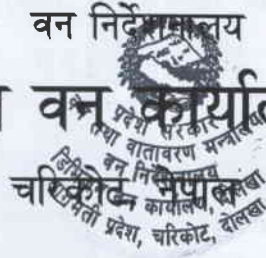 वन निर्देशनालय
वन कार्याल
चरिकोट, नेपाल
प्रदेश सरकार
तथा वातावरण मन्त्राल
वन निर्देशनालय
डिभिजन वन कार्यालय, दोलखा
प्रदेश, चरिकोट, दोलखा